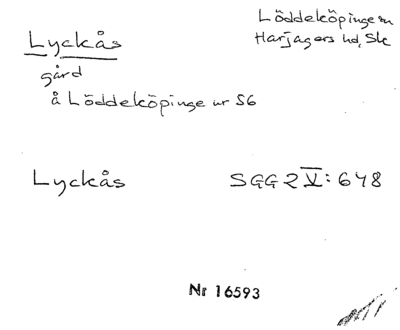 Lyckås
Löddeköpinge sn
Harjagers hd, Sk
gård
å Löddeköpinge nr 56
Lyckås
SGG 2 V: 648
Nr 16593